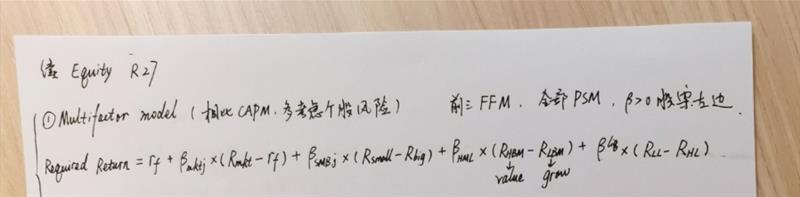 Equity R27
① Multifactor model (相比CAPM.多考虑个股风险) 前三FFM. 全部PSM, β>0 股票左边.
Required Return = rf + βmktj × (Rmkt - rf) + βSMBj × (Rsmall - Rbig) + βHML × (RHBM - RLBM) + βLiq × (RLL - RHL)
↓ ↓
value grow